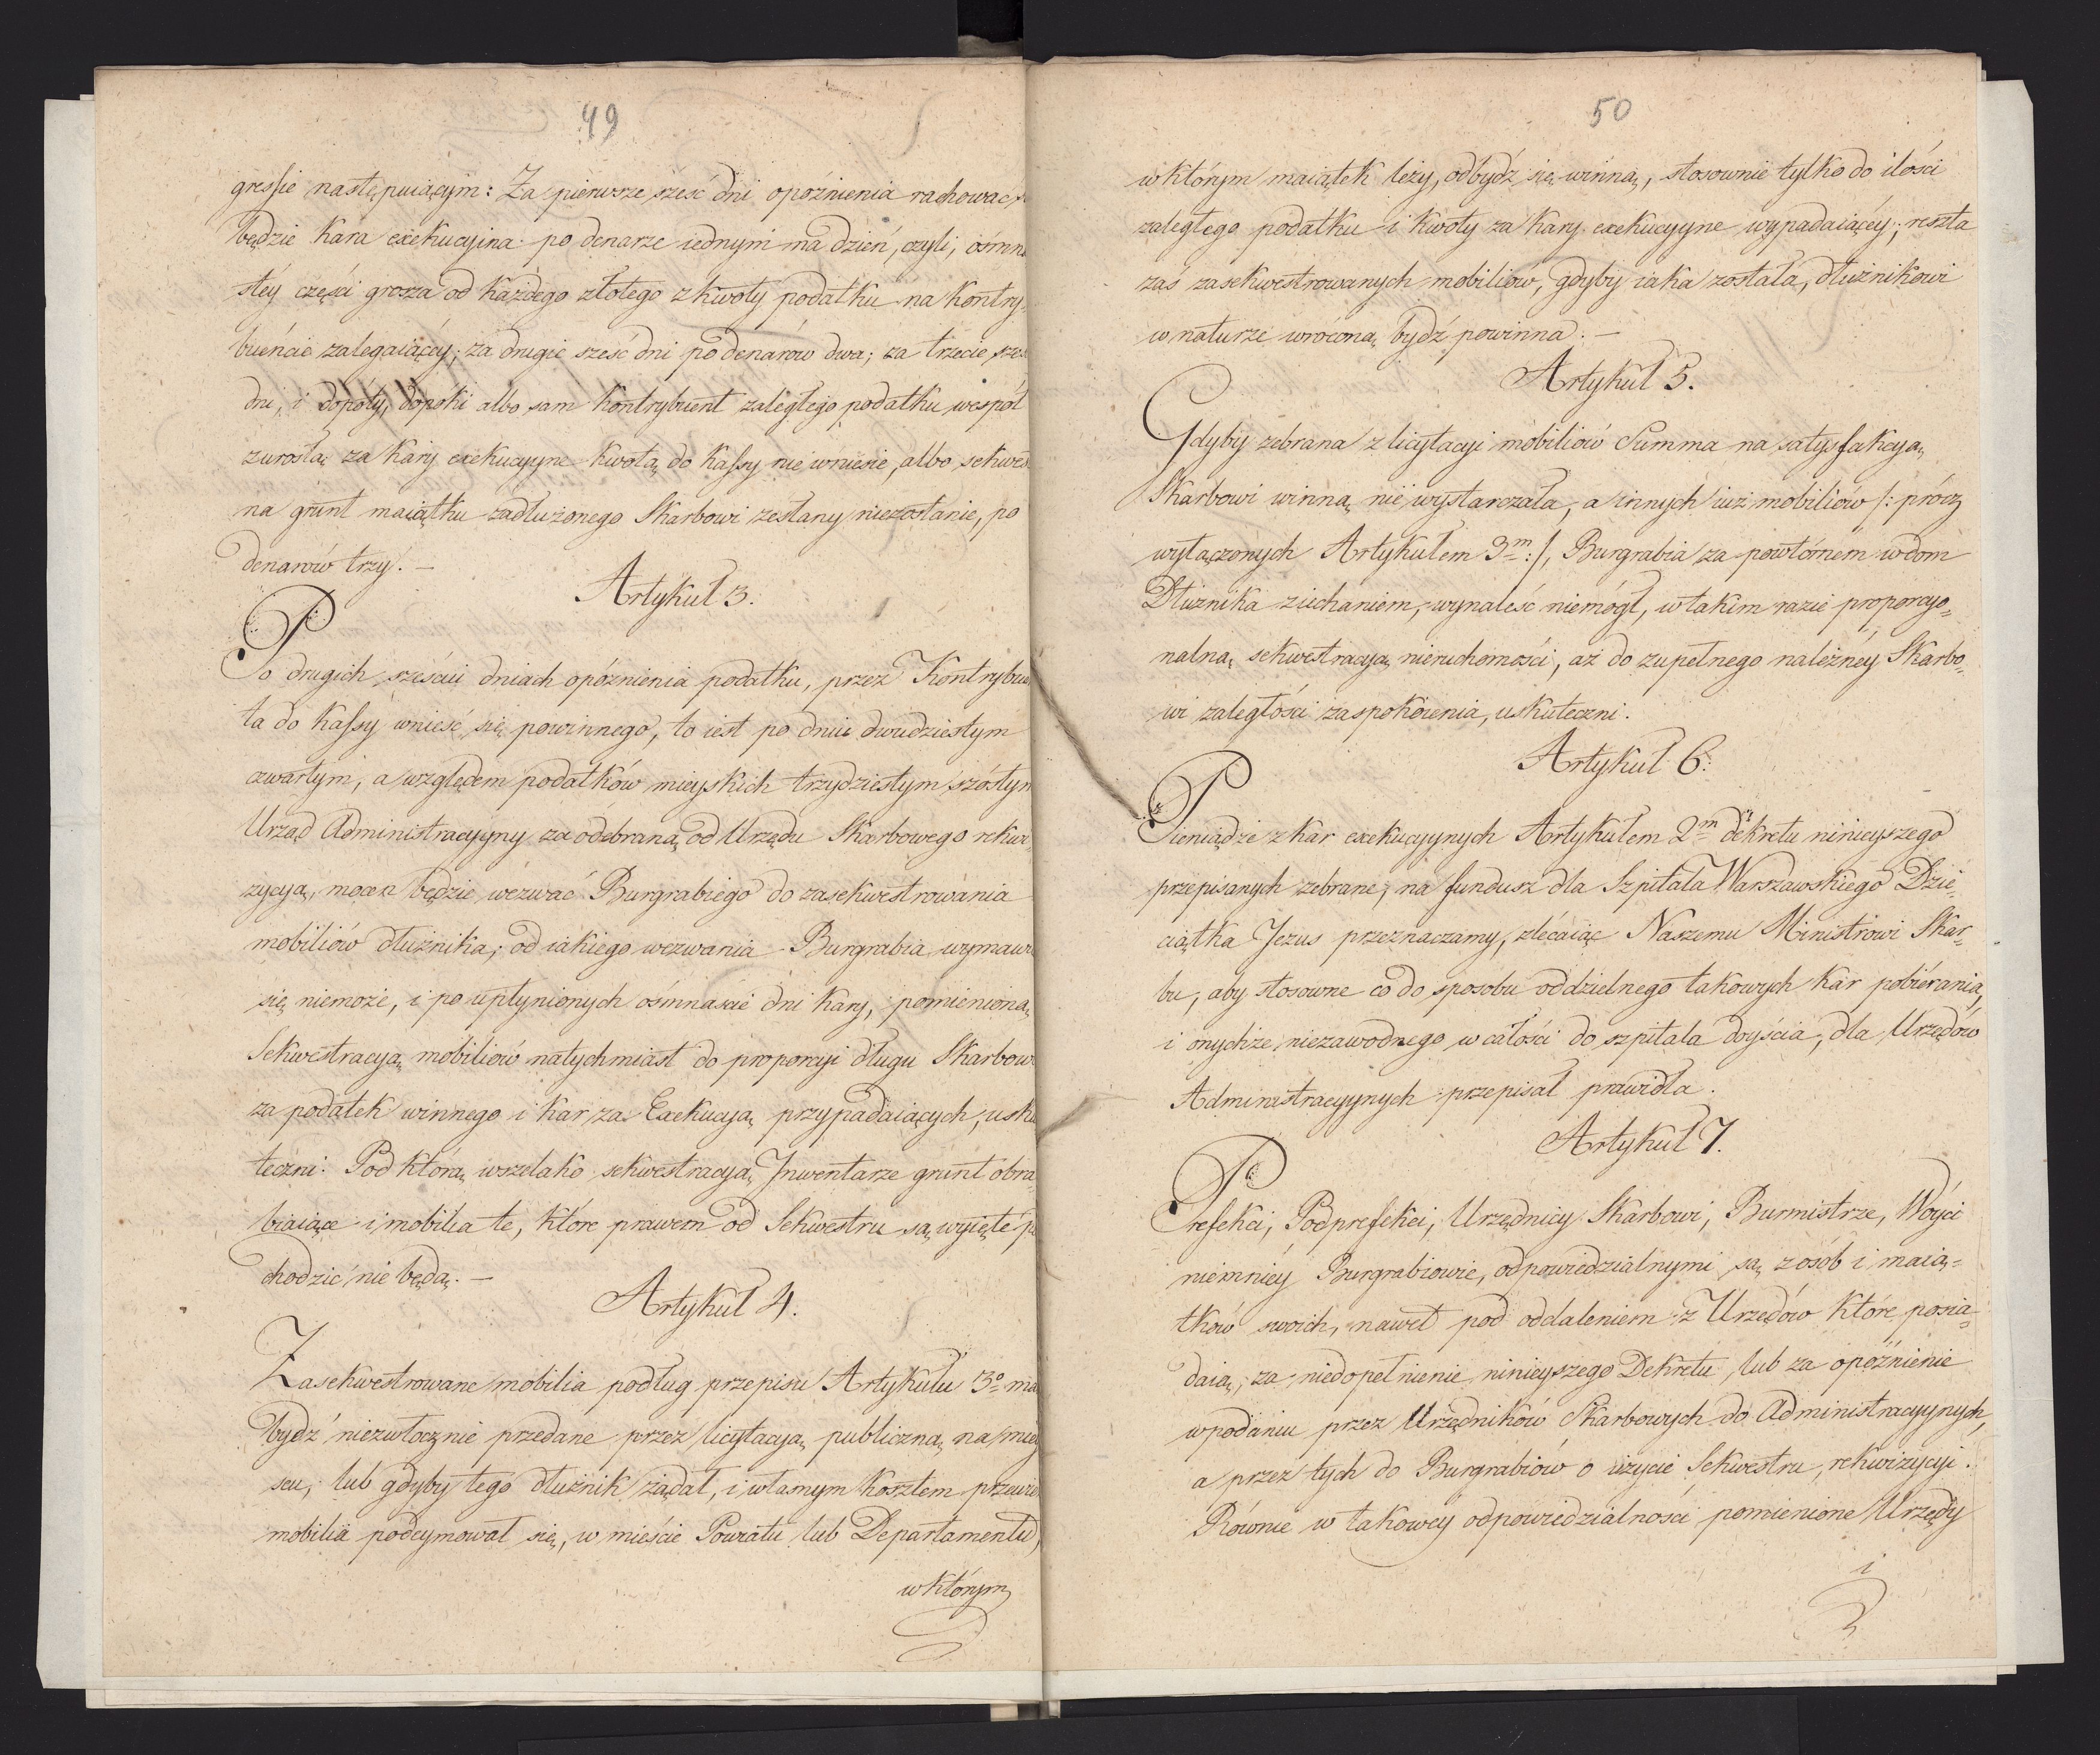 49
gressie następuiącym: Za pierwsze sześć dni opóźnienia rachować
będzie kara exekucyina po denarze iednym na dzień, czyli, ośmna
stéy części grosza od każdego złotego z kwoty podatku na kontry,
buencie zalegaiącéy; za drugie sześć dni po denarów dwa; za trzecie sześć
dni, i dopóty, dopóki albo sam kontrybuent zaległego podatku wespół
zurosłą za kary exekucyyne kwotą do kassy nie wniesie, albo sekwes
na grunt maiątku zadłużonego Skarbowi zesłany niezostanie, po
denarów trzy. —
Artykuł 3.
Po drugich sześciu dniach opóźnienia podatku, przez Kontrybuen
ta do kassy wnieść się powinnego, to iest po dniu dwudziestym
czwartym, a względem podatków mieyskich trzydziestym szóstym
Urząd Administracyyny za odebraną od Urzędu Skarbowego rekwi,
zycyą, mocen będzie wezwać Burgrabiego do zasekwestrowania
mobiliów dłużnika; od iakiego wezwania Burgrabia wymawi
się niemoże, i po upłynionych ośmnaście dni kary, pomienioną
Sekwestracyą mobiliów natychmiast do proporcyi długu Skarbowi
za podatek winnego i kar za Exekucyą przypadaiących, usku
teczni. Pod którą wszelako sekwestracyą, Inwentarze grunt obra
biaiące i mobilia te, które prawem od Sekwestru są wyięte po
chodzić nie będą. —
Artykuł 4.
Zasekwestrowane mobilia podług przepisu Artykułu 3º ma
bydź niezwłocznie przedane przez licytacyą publiczną na miey
scu, lub gdyby tego dłużnik żądał, i własnym kosztem przewie
mobilia podeymował się, w mieście Powiatu lub Departamentu,
w którym
50
w którym maiątek leży, odbydź się winną, stosownie tylko do ilości
zaległego podatku i kwoty za kary exekucyyne wypadaiącéy; reszta
zaś zasekwestrowanych mobiliów, gdyby iaka została, dłużnikowi
w naturze wróconą bydź powinna. —
Artykuł 5.
Gdyby zebrana z licytacyi mobiliów Summa na satysfakcyą
Skarbowi winną nie wystarczała, a innych iuż mobiliów /: prócz
wyłączonych Artykułem 3m :/, Burgrabia za powtórnem w dom
Dłużnika ziechaniem, wynaleść niemógł, w takim razie proporcyo„
nalną sekwestracyą nieruchomości, aż do zupełnego należnéy Skarbo„
wi zaległości zaspokoienia, uskuteczni.
Artykuł 6.
Pieniądze z kar exekucyynych Artykułem 2m dekretu ninieyszego
przepisanych zebrane, na fundusz dla Szpitala Warszawskiego Dzie„
ciątka Jezus przeznaczamy, zlécaiąc Naszemu Ministrowi Skar„
bu, aby stosowne co do sposobu oddzielnego takowych kar pobiérania,
i onychże niezawodnego w całości do szpitala doyścia, dla Urzędów
Administracyynych przepisał prawidła.
Artykuł 7.
Prefekci, Podprefekci, Urzędnicy Skarbowi, Burmistrze, Wóyci
niemniéy Burgrabiowie, odpowiedzialnymi są z osób i maią„
tków swoich, nawet pod oddaleniem z Urzędów które posia„
daią, za niedopełnienie ninieyszego Dekretu lub za opóźnienie
w podaniu przez Urzędników Skarbowych do Administracyynych,
a przez tych do Burgrabiów o użycie Sekwestru, rekwizycyi.
Równie w takowéy odpowiedzialności pomienione Urzędy
i